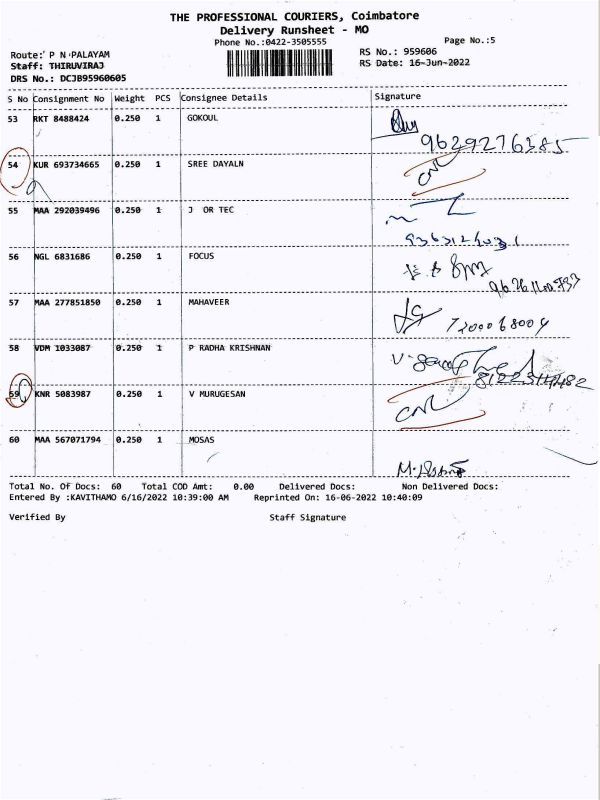 THE PROFESSIONAL COURIERS, Coimbatore
Delivery Runsheet - MO
Phone No.:0422-3505555 Page No.:5
Route: P N PALAYAM RS No.: 959606
Staff: THIRUVIRAJ RS Date: 16-Jun-2022
DRS No.: DCJB95960605
S No Consignment No Weight PCS Consignee Details Signature
53 RKT 8488424 0.250 1 GOKOUL
9629276385
54 KUR 693734665 0.250 1 SREE DAYALN
CNL
55 MAA 292039496 0.250 1 J OR TEC
56 NGL 6831686 0.250 1 FOCUS
57 MAA 277851850 0.250 1 MAHAVEER
7200068004
58 VDM 1033087 0.250 1 P RADHA KRISHNAN
59 KNR 5083987 0.250 1 V MURUGESAN
CNL
60 MAA 567071794 0.250 1 MOSAS
Total No. Of Docs: 60 Total COD Amt: 0.00 Delivered Docs: Non Delivered Docs:
Entered By :KAVITHAMO 6/16/2022 10:39:00 AM Reprinted On: 16-06-2022 10:40:09
Verified By Staff Signature